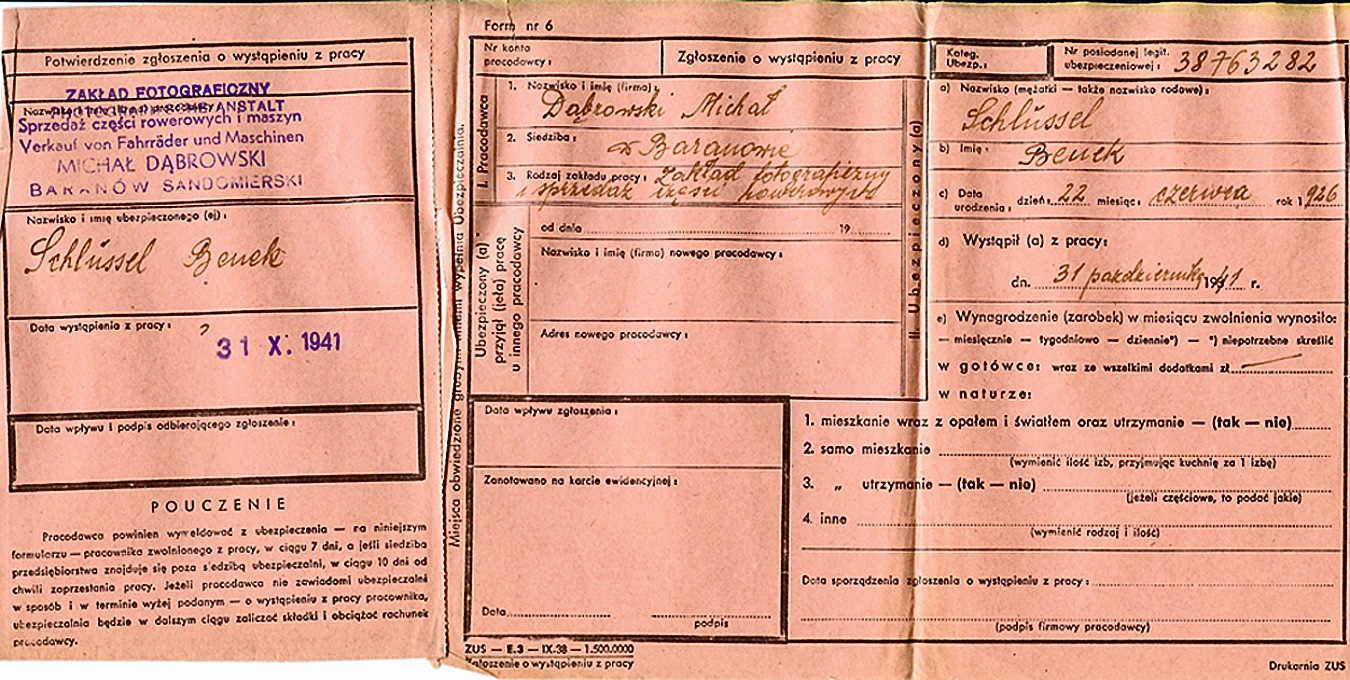 Potwierdzenie zgłoszenia o wystąpieniu z pracy
ZAKŁAD FOTOGRAFICZNY
PHOTOGRAPHISCHE ANSTALT
Sprzedaż części rowerowych i maszyn
Verkauf von Fahrräder und Maschinen
MICHAŁ DĄBROWSKI
BARANÓW SANDOMIERSKI
Nazwisko i imię ubezpieczonego (ej):
Schlüssel Benek
Data wystąpienia z pracy:
31 X. 1941
Data wpływu i podpis odbierającego zgłoszenie:
POUCZENIE
Pracodawca powinien wymeldować z ubezpieczenia — na niniejszym
formularzu — pracownika zwolnionego z pracy, w ciągu 7 dni, a jeśli siedziba
przedsiębiorstwa znajduje się poza siedzibą ubezpieczalni, w ciągu 10 dni od
chwili zaprzestania pracy. Jeżeli pracodawca nie zawiadomi ubezpieczalni
w sposób i w terminie wyżej podanym — o wystąpieniu z pracy pracownika,
ubezpieczalnia będzie w dalszym ciągu zaliczać składki i obciążać rachunek
pracodawcy.
Miejsca obwiedzione grubymi liniami wypełnia Ubezpieczalnia.
Form nr 6
Nr konta
pracodawcy:
Zgłoszenie o wystąpieniu z pracy
I. Pracodawca
1. Nazwisko i imię (firma):
Dąbrowski Michał
2. Siedziba: w Baranowie
3. Rodzaj zakładu pracy: Zakład fotograficzny
i sprzedaż części rowerowych
Ubezpieczony (a)
przyjął (jęła) pracę
u innego pracodawcy
od dnia 19
Nazwisko i imię (firma) nowego pracodawcy:
Adres nowego pracodawcy:
Data wpływu zgłoszenia:
Zanotowano na karcie ewidencyjnej:
Data
podpis
ZUS — E.3 — IX.38 — 1.500.0000
Zgłoszenie o wystąpieniu z pracy
II. Ubezpieczony (a)
Kateg.
Ubezp.:
Nr posiadanej legit.
ubezpieczeniowej: 38763282
a) Nazwisko (mężatki — także nazwisko rodowe):
Schlüssel
b) Imię: Benek
c) Data
urodzenia: dzień: 22 miesiąc: czerwca rok 1926
d) Wystąpił (a) z pracy:
dn. 31 października 1941 r.
e) Wynagrodzenie (zarobek) w miesiącu zwolnienia wynosiło:
— miesięcznie — tygodniowo — dziennie*) — *) niepotrzebne skreślić
w gotówce: wraz ze wszelkimi dodatkami zł
w naturze:
1. mieszkanie wraz z opałem i światłem oraz utrzymanie — (tak — nie)
2. samo mieszkanie
(wymienić ilość izb, przyjmując kuchnię za 1 izbę)
3. „ utrzymanie — (tak — nie)
(jeżeli częściowe, to podać jakie)
4. inne
(wymienić rodzaj i ilość)
Data sporządzenia zgłoszenia o wystąpieniu z pracy:
(podpis firmowy pracodawcy)
Drukarnia ZUS